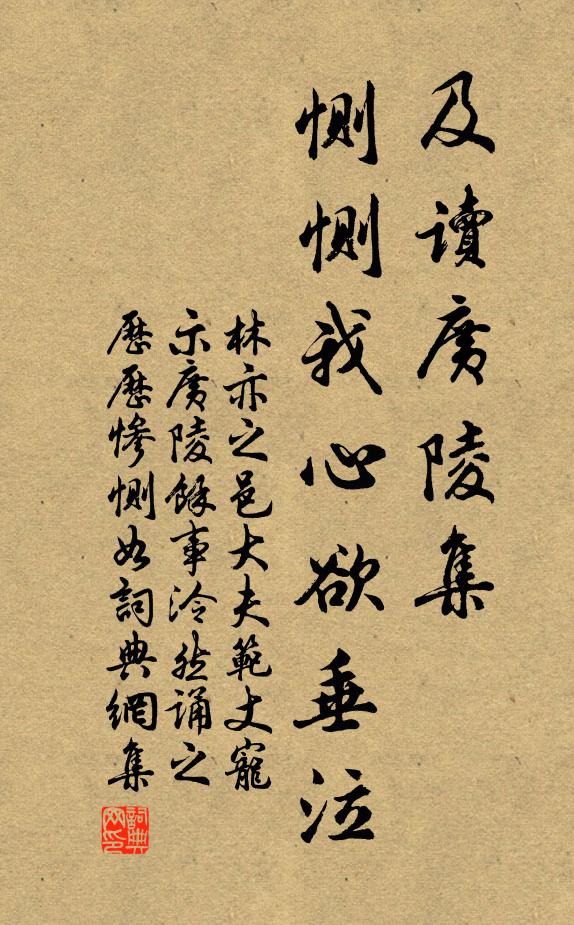 及讀廣陵集
惻惻我心欲垂泣
林亦之邑大夫範丈寵
示廣陵餘事泠然誦之
歷歷慘惻如詞典網集
詞典网印